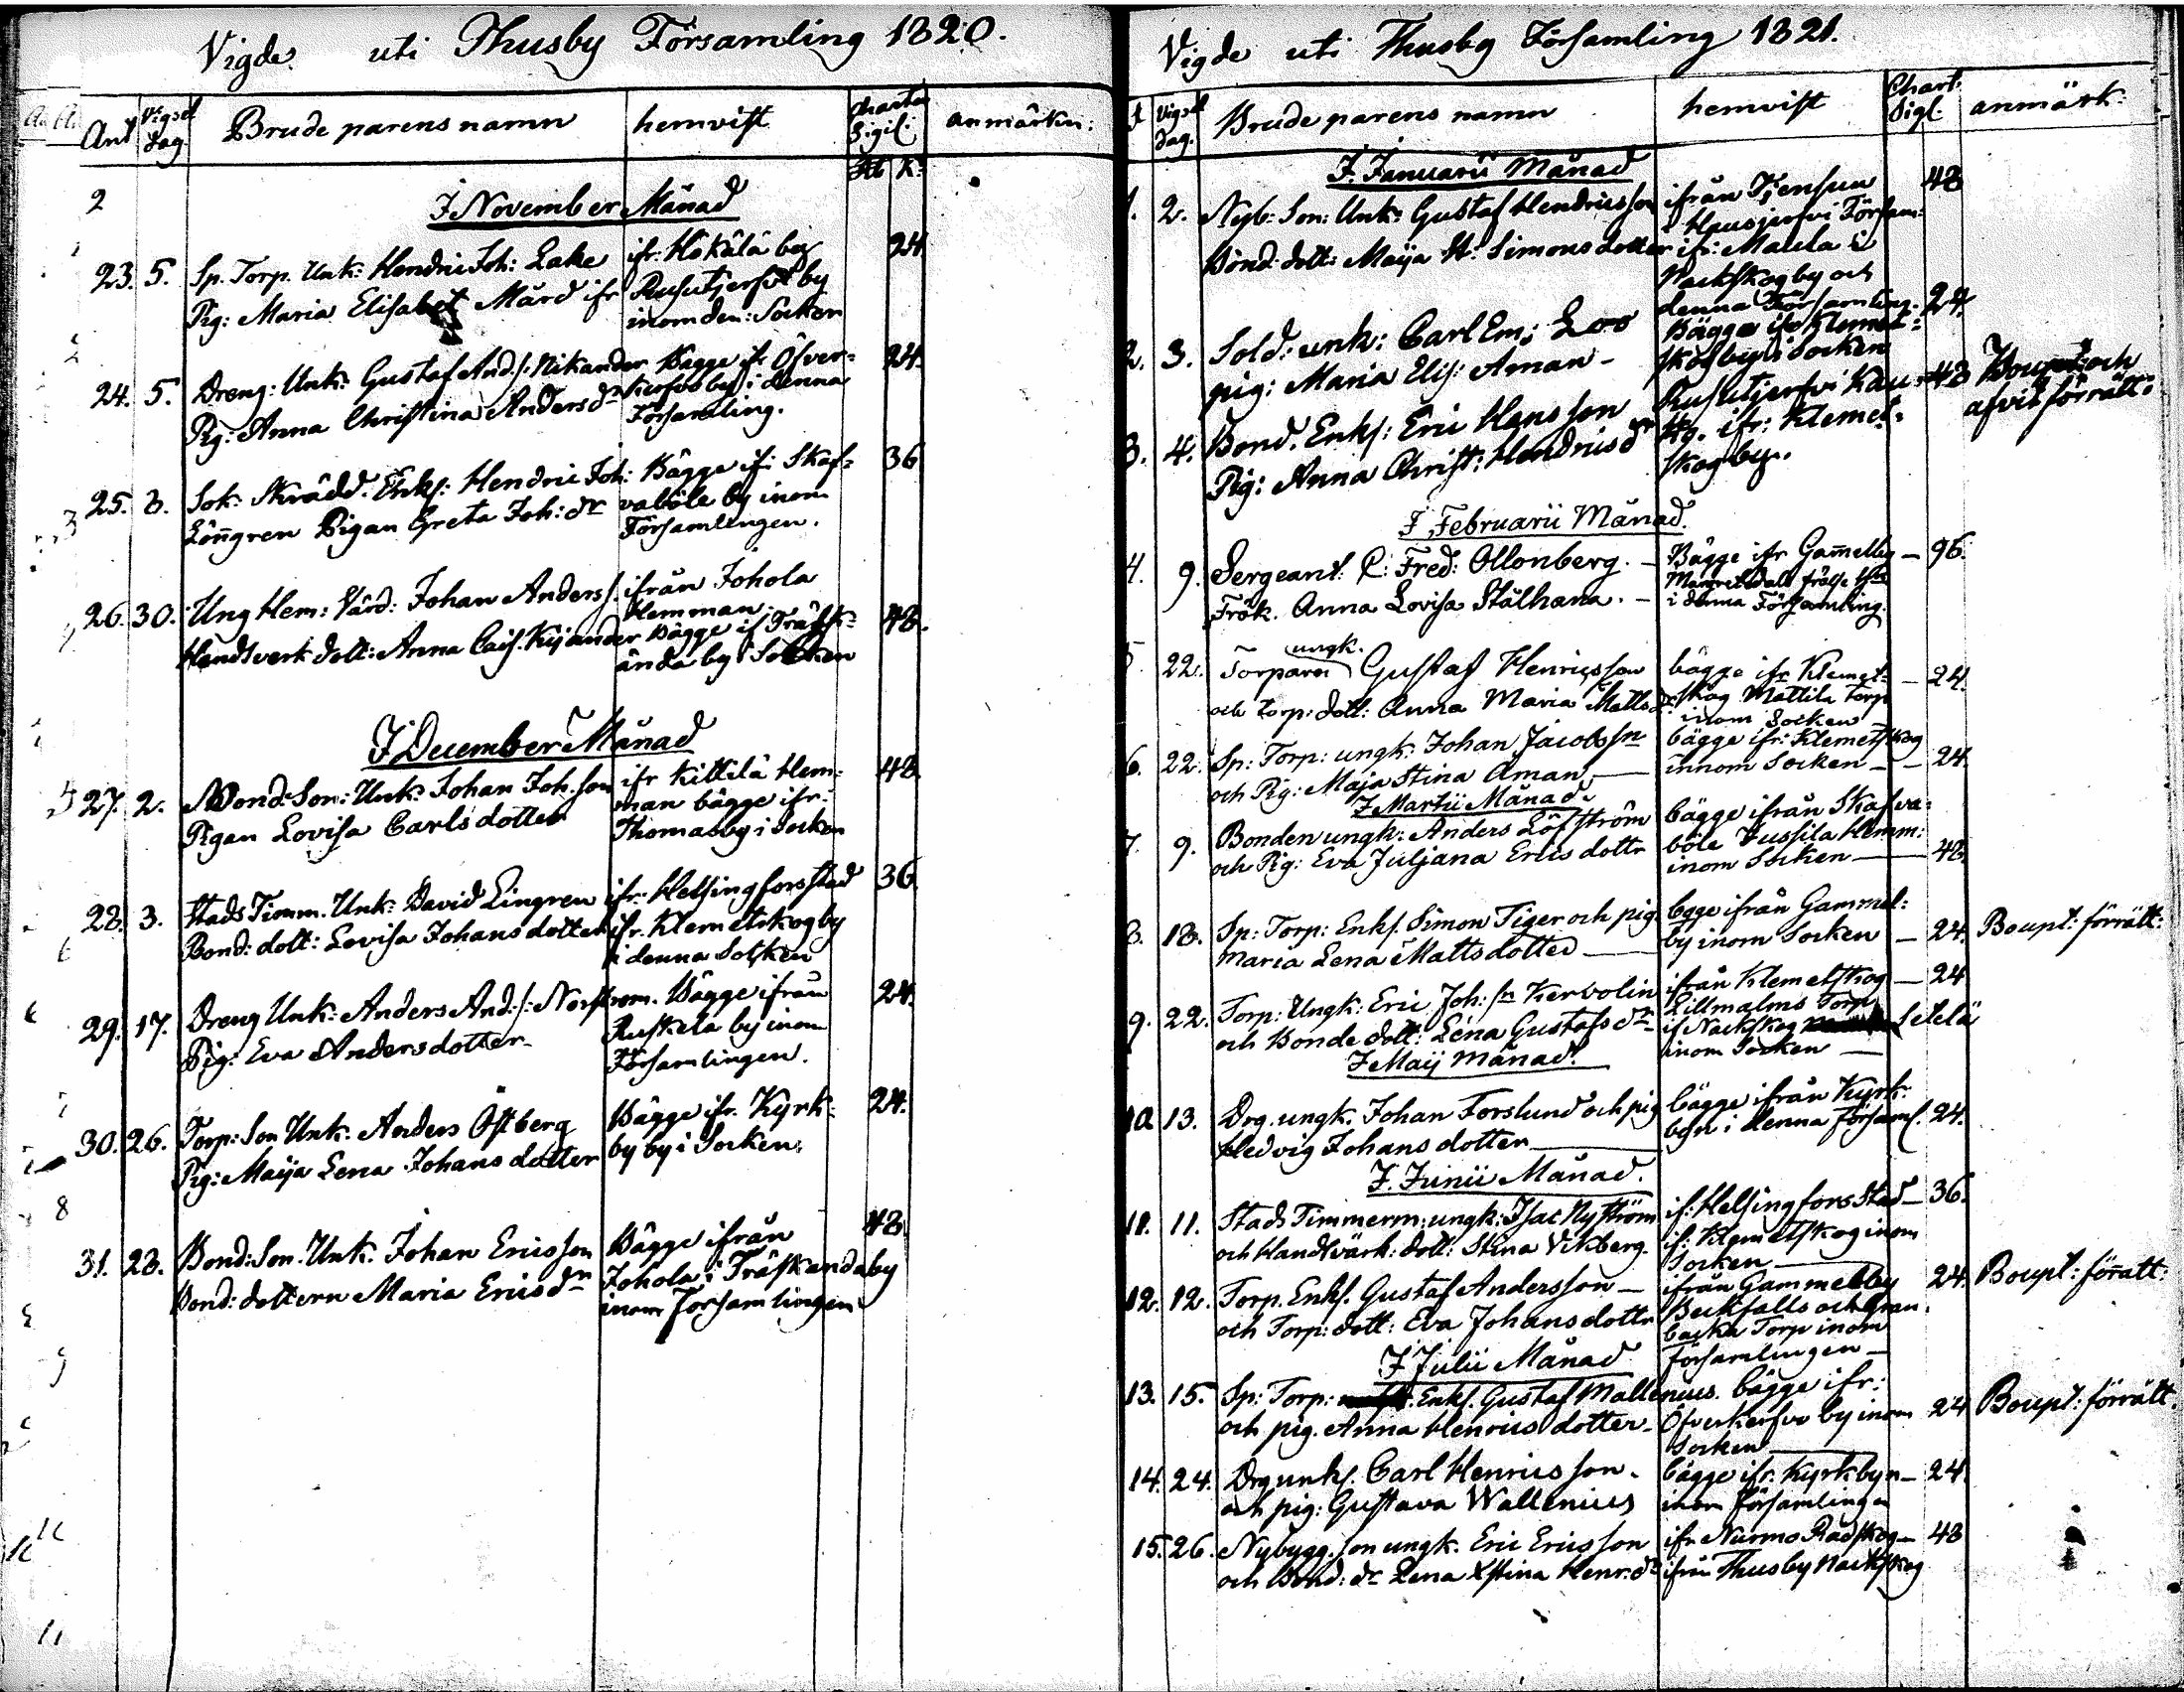 Vigde uti Thusby Församling 1820.
Ant Vigsel dag Brude parens namn hemvist Charta Sigil: anmärkn:
Rb K:
I November Månad
23. 5. Sp. Torp. Unk: Hendric Joh: Lake ifr: Hökälä by 24
Pig: Maria Elisabet Mård ifr Rusutjerfvi by
inom den: Socken
24. 5. Dreng: Unk: Gustaf And:s: Nikander Bägge ifr Öfver- 24.
Pig: Anna Christina Anders dr kierfvo by i denna
Församling.
25. 3. Sok: Skrädd: Enks: Hendric Joh: Bägge ifr Skaf- 36
Lönngren Pigan Greta Joh: dr vaböle by inom
Församlingen.
26. 30. Ung Hem: Värd: Johan Anders s. ifrån Johola
Hemman
Handtverk dott: Anna Cais. Kijander Bägge if Träsk- 48.
ända by i Socken
I December Månad
27. 2. Bond: Son: Unk: Johan Joh. son ifr Kittilä Hem- 48
Pigan Lovisa Carlsdotter man bägge ifr:
Thomasby i Socken
28. 3. Stads Timm. Unk: David Lingren ifr: Helsingfors stad 36
Bond: dott: Lovisa Johans dotter ifr. Klemetskog by
i denna Socken
29. 17. Dreng Unk: Anders And:s: Norstrom. Bägge ifrån 24.
Pig: Eva Andersdotter. Ruskela by inom
Församlingen.
30. 26. Torp: Son Unk: Anders Östberg Bägge ifr. Kyrk- 24.
Pig: Maija Lena Johans dotter by by i Socken.
31. 28. Bond: Son. Unk. Johan Ericsson Bägge ifrån 48
Bond: dottern Maria Erics dr Johola i Träskanda by
inom Församlingen
Vigde uti Thusby Församling 1821.
Vigsel dag. Brude parens namn hemvist Chart: Sigl. anmärk:
I. Januarii Månad
1. 2. Nyb: Son: Unk: Gustaf Hendricsson ifrån 48
Hausjerfvi Församl:
Bond: dott: Maija St: Simonsdotter ifr: Maula i
Nackskog by och
denna Församling.
2. 3. Sold: unk: Carl Em: Loo Bägge ifr Klemet- 24.
pig: Maria Elis: Aman skog by i Socken
3. 4. Bond. Enks: Eric Hansson Rusutjerfvi 48 Boupt: och
Pig: Anna Christ: Hendrics dr ifr: Klemet- afvit förrätt:
skog by.
I Februarii Månad.
4. 9. Sergeant: C: Fred: Ollonberg. Bägge ifr Gammelby 96.
Frök. Anna Lovisa Stålhana. frälse
i denna Församling.
5 22. Torparen ungk. Gustaf Henricsson bägge ifr Klemet- 24.
och Torp: dott: Anna Maria Matts dr skog Mattila Torp
inom Socken
6. 22. Sp: Torp: ungk: Johan Jacobs sn bägge ifr: Klemetskog
och Pig: Maja Stina Aman innom Socken 24.
I Martii Månad.
7. 9. Bonden ungk: Anders Löfström bägge ifrån Skafva-
och Pig: Eva Juljana Erics dottr böle Jussila Hemm:
inom Socken 48
8. 18. Sp: Torp: Enks. Simon Tiger och pig. bgge ifrån Gammel-
Maria Lena Mattsdotter by inom Socken 24. Boupt: förrätt:
9. 22. Torp: Ungk: Eric Joh: sn Kervolin ifrån Klemetskog 24
Lillmalms Torp
och Bonde dott: Lena Gustafs dr if Nackskog Setelä
inom Socken
I Maij Månad.
10. 13. Drg. ungk. Johan Forslund och pig bägge ifrån Kyrk-
Hedvig Johansdotter byn i denna församl. 24.
I. Junii Månad.
11. 11. Stads Timmerm: ungk: Isac Nyström if: Helsingfors Stad 36.
och Handtvärk: dott: Stina Vikberg. if: Klemetskog inom
Socken
12. 12. Torp. Enks. Gustaf Andersson ifrån Gammelby 24. Boupt: förrätt:
och Torp: dott: Eva Johansdottr Backfalls och Gran-
backa Torp inom
Församlingen
I Julii Månad
13. 15. Sp: Torp: Enks. Gustaf Mallenius. bägge ifr:
och pig. Anna Henricsdotter Öfverkerfvo by inom 24 Boupt: förrätt.
Socken
14. 24. Drg unks. Carl Henricsson. bägge ifr. Kyrkbyn 24.
och pig: Gustava Wallenius inom församlingen
15. 26. Nybygg. son ungk. Eric Ericsson ifr Nurmo Radskog 48
och Bond: dr Lena Xstina Henr. dr ifrån Thusby Nackskog